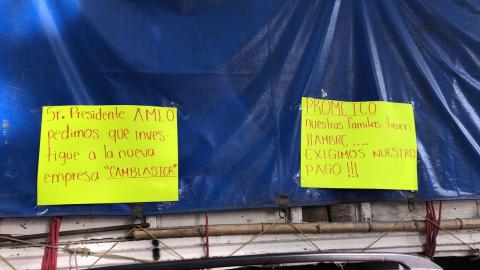 Sr. Presidente AMLO
pedimos que inves-
tigue a la nueva
empresa "CAMBLASTER"
PROMETCO
nuestras familas tienen
HAMBRE ....
EXIGIMOS NUESTRO
PAGO !!!